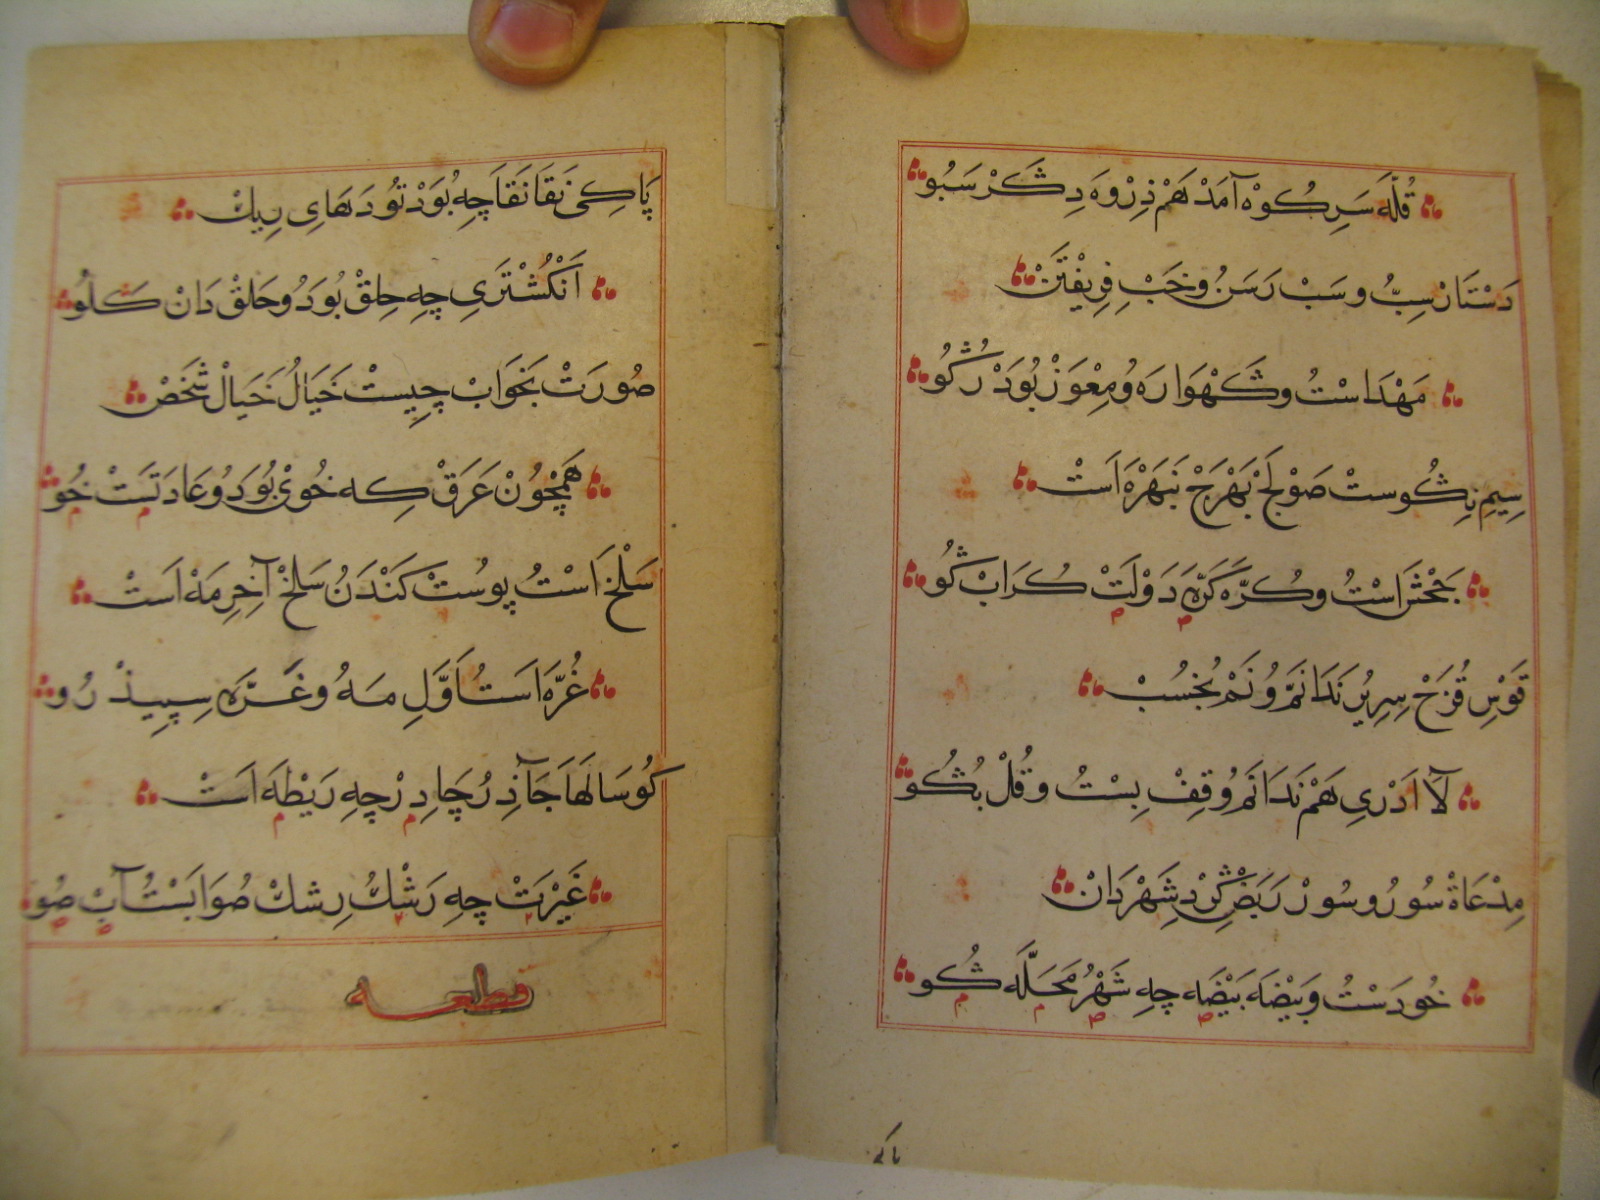 قُلَّه سَرِ كُوهْ آمَدْ هَمْ ذِرْوَه دِكَرْ سَبُو
دَسْتَانْ سِبُّ وسَبْ رَسَنُ وخَبْ فِرِيفْتَنْ
مَهْدَاسْتُ وكَهْوَارَه وُمِعْوَزْ بُوَدْ رُكُو
سِيمِ نِكُوستْ صَوْلَجْ بَهْرَجْ نَبَهْرَه اَستْ
جَحْشَ اسْتُ وكُرَّه كَرَّه دَوْلَتْ كُرَابْ كُو
قَوْسِ قُزَحْ سِرِيرُ نَدَانَمَّ وُنَمْ بُخسُبْ
لاَ اَدْرِي هَمْ نَدَانَمُ وقِفْ بِسْتُ وقُلْ بُكُو
مِدْعَاةْ سُورُ وسُورْ رَبَضْ كِرْدِ شَهْرْ دَانْ
خُودَسْتُ وبَيْضَه بَيْضَه چِه شَهْرُ مَحَلَّه كُو
پاكِ
پَاكِي نَقَا نَقَا چِه بُوَدْ تُودَهَاىِ رِيكْ
اَنْكُشْتَرِي چِه حِلِقْ بُوَدُ وحَلقْ دَانْ كَلُو
صُورَتْ بَخَوَابْ چِيسْتْ خَيَالُ خَيَالْ شَخَصْ
هَمْچُونْ عَرَقْ كِه خُوىْ بُوَدُ وعَادَتَستْ خُو
سَلْخْ اَسْتُ پوُسْتْ كَنْدَنُ سَلخْ آخِرِ مَهْ اَستْ
غُرَّه اَستُ اَوَّلِ مَهُ وغَرَّه سِپِيذْ رُو
كُوسَالَهَا جَآذِرُ چَادِرْ چِه رَيْطَه اَستْ
غَيْرَتْ چِه رَشْكُ رِشكْ صُوَابَسْتُ آبْ صُو
قطعه